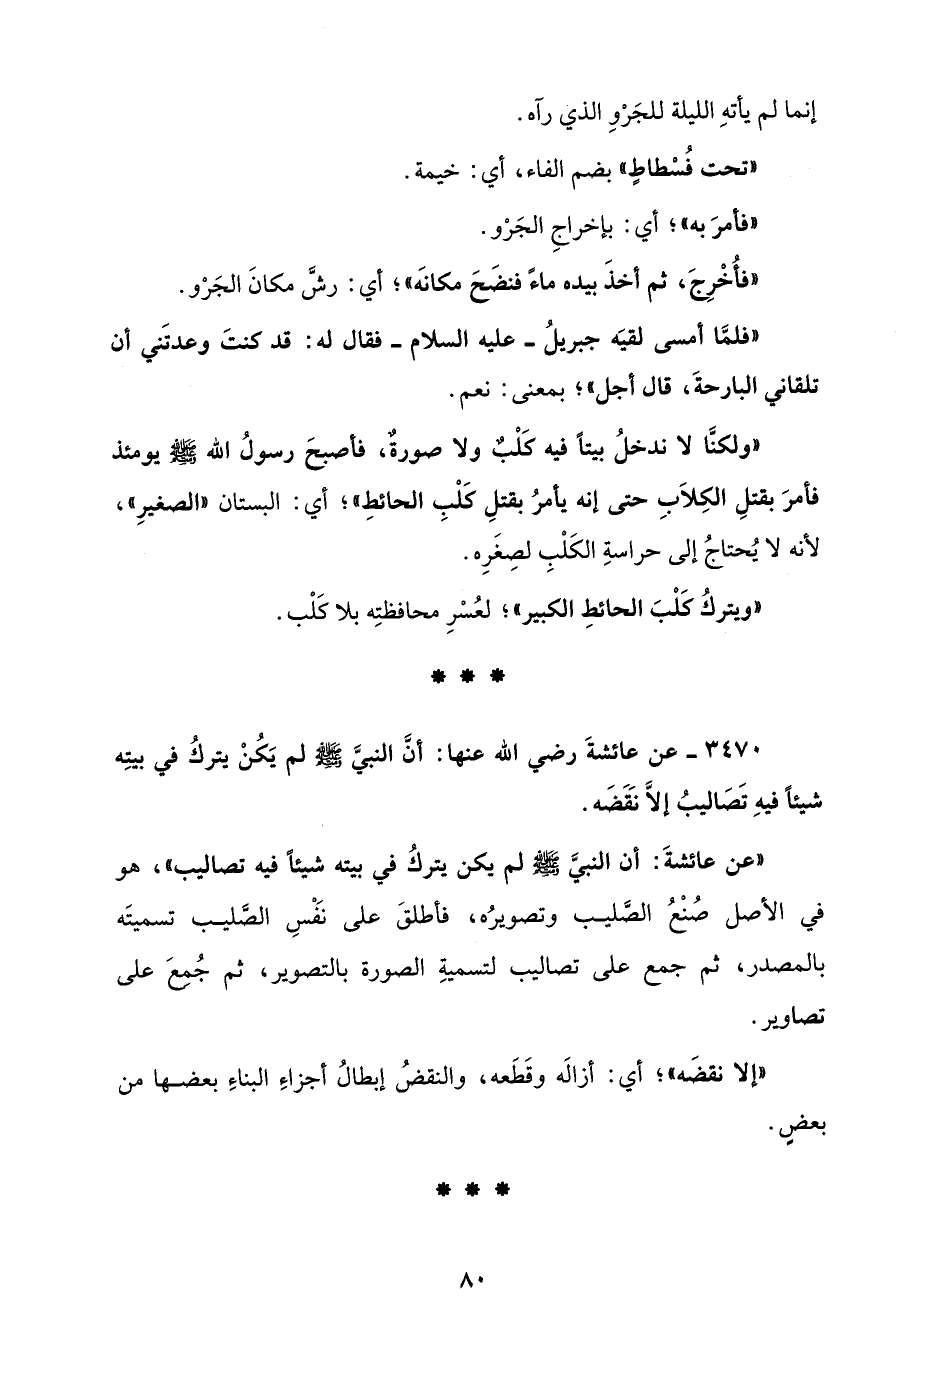 إنما لم يأتهِ الليلة للجَرْوِ الذي رآه.
«تحت فُسْطاطٍ» بضم الفاء، أي: خيمة.
«فأمرَ به»؛ أي: بإخراجِ الجَرْو.
«فأُخْرِجَ، ثم أخذَ بيده ماءً فنضَحَ مكانَه»؛ أي: رشَّ مكانَ الجَرْو.
«فلمَّا أمسى لقيَه جبريلُ ـ عليه السلام ـ فقال له: قد كنتَ وعدتَني أن
تلقاني البارحةَ، قال أجل»؛ بمعنى: نعم.
«ولكنَّا لا ندخلُ بيتاً فيه كَلْبٌ ولا صورةٌ، فأصبحَ رسولُ الله ﷺ يومئذ
فأمرَ بقتلِ الكِلاَبِ حتى إنه يأمرُ بقتلِ كَلْبِ الحائطِ»؛ أي: البستان «الصغيرِ»،
لأنه لا يُحتاجُ إلى حراسةِ الكَلْبِ لصِغَرِه.
«ويتركُ كَلْبَ الحائطِ الكبير»؛ لعُسْرِ محافظتِه بلا كَلْب.
* * *
٣٤٧٠ ـ عن عائشةَ رضي الله عنها: أنَّ النبيَّ ﷺ لم يَكُنْ يتركُ في بيتِه
شيئاً فيهِ تَصَاليبُ إلاَّ نَقَضَه.
«عن عائشةَ: أن النبيَّ ﷺ لم يكن يتركُ في بيته شيئاً فيه تصاليب»، هو
في الأصل صُنْعُ الصَّليب وتصويرُه، فأطلقَ على نَفْسِ الصَّليب تسميتَه
بالمصدر، ثم جمع على تصاليب لتسميةِ الصورة بالتصوير، ثم جُمِعَ على
تصاوير.
«إلا نقضَه»؛ أي: أزالَه وقَطَعه، والنقضُ إبطالُ أجزاءِ البناءِ بعضها من
بعضٍ.
* * *
٨٠